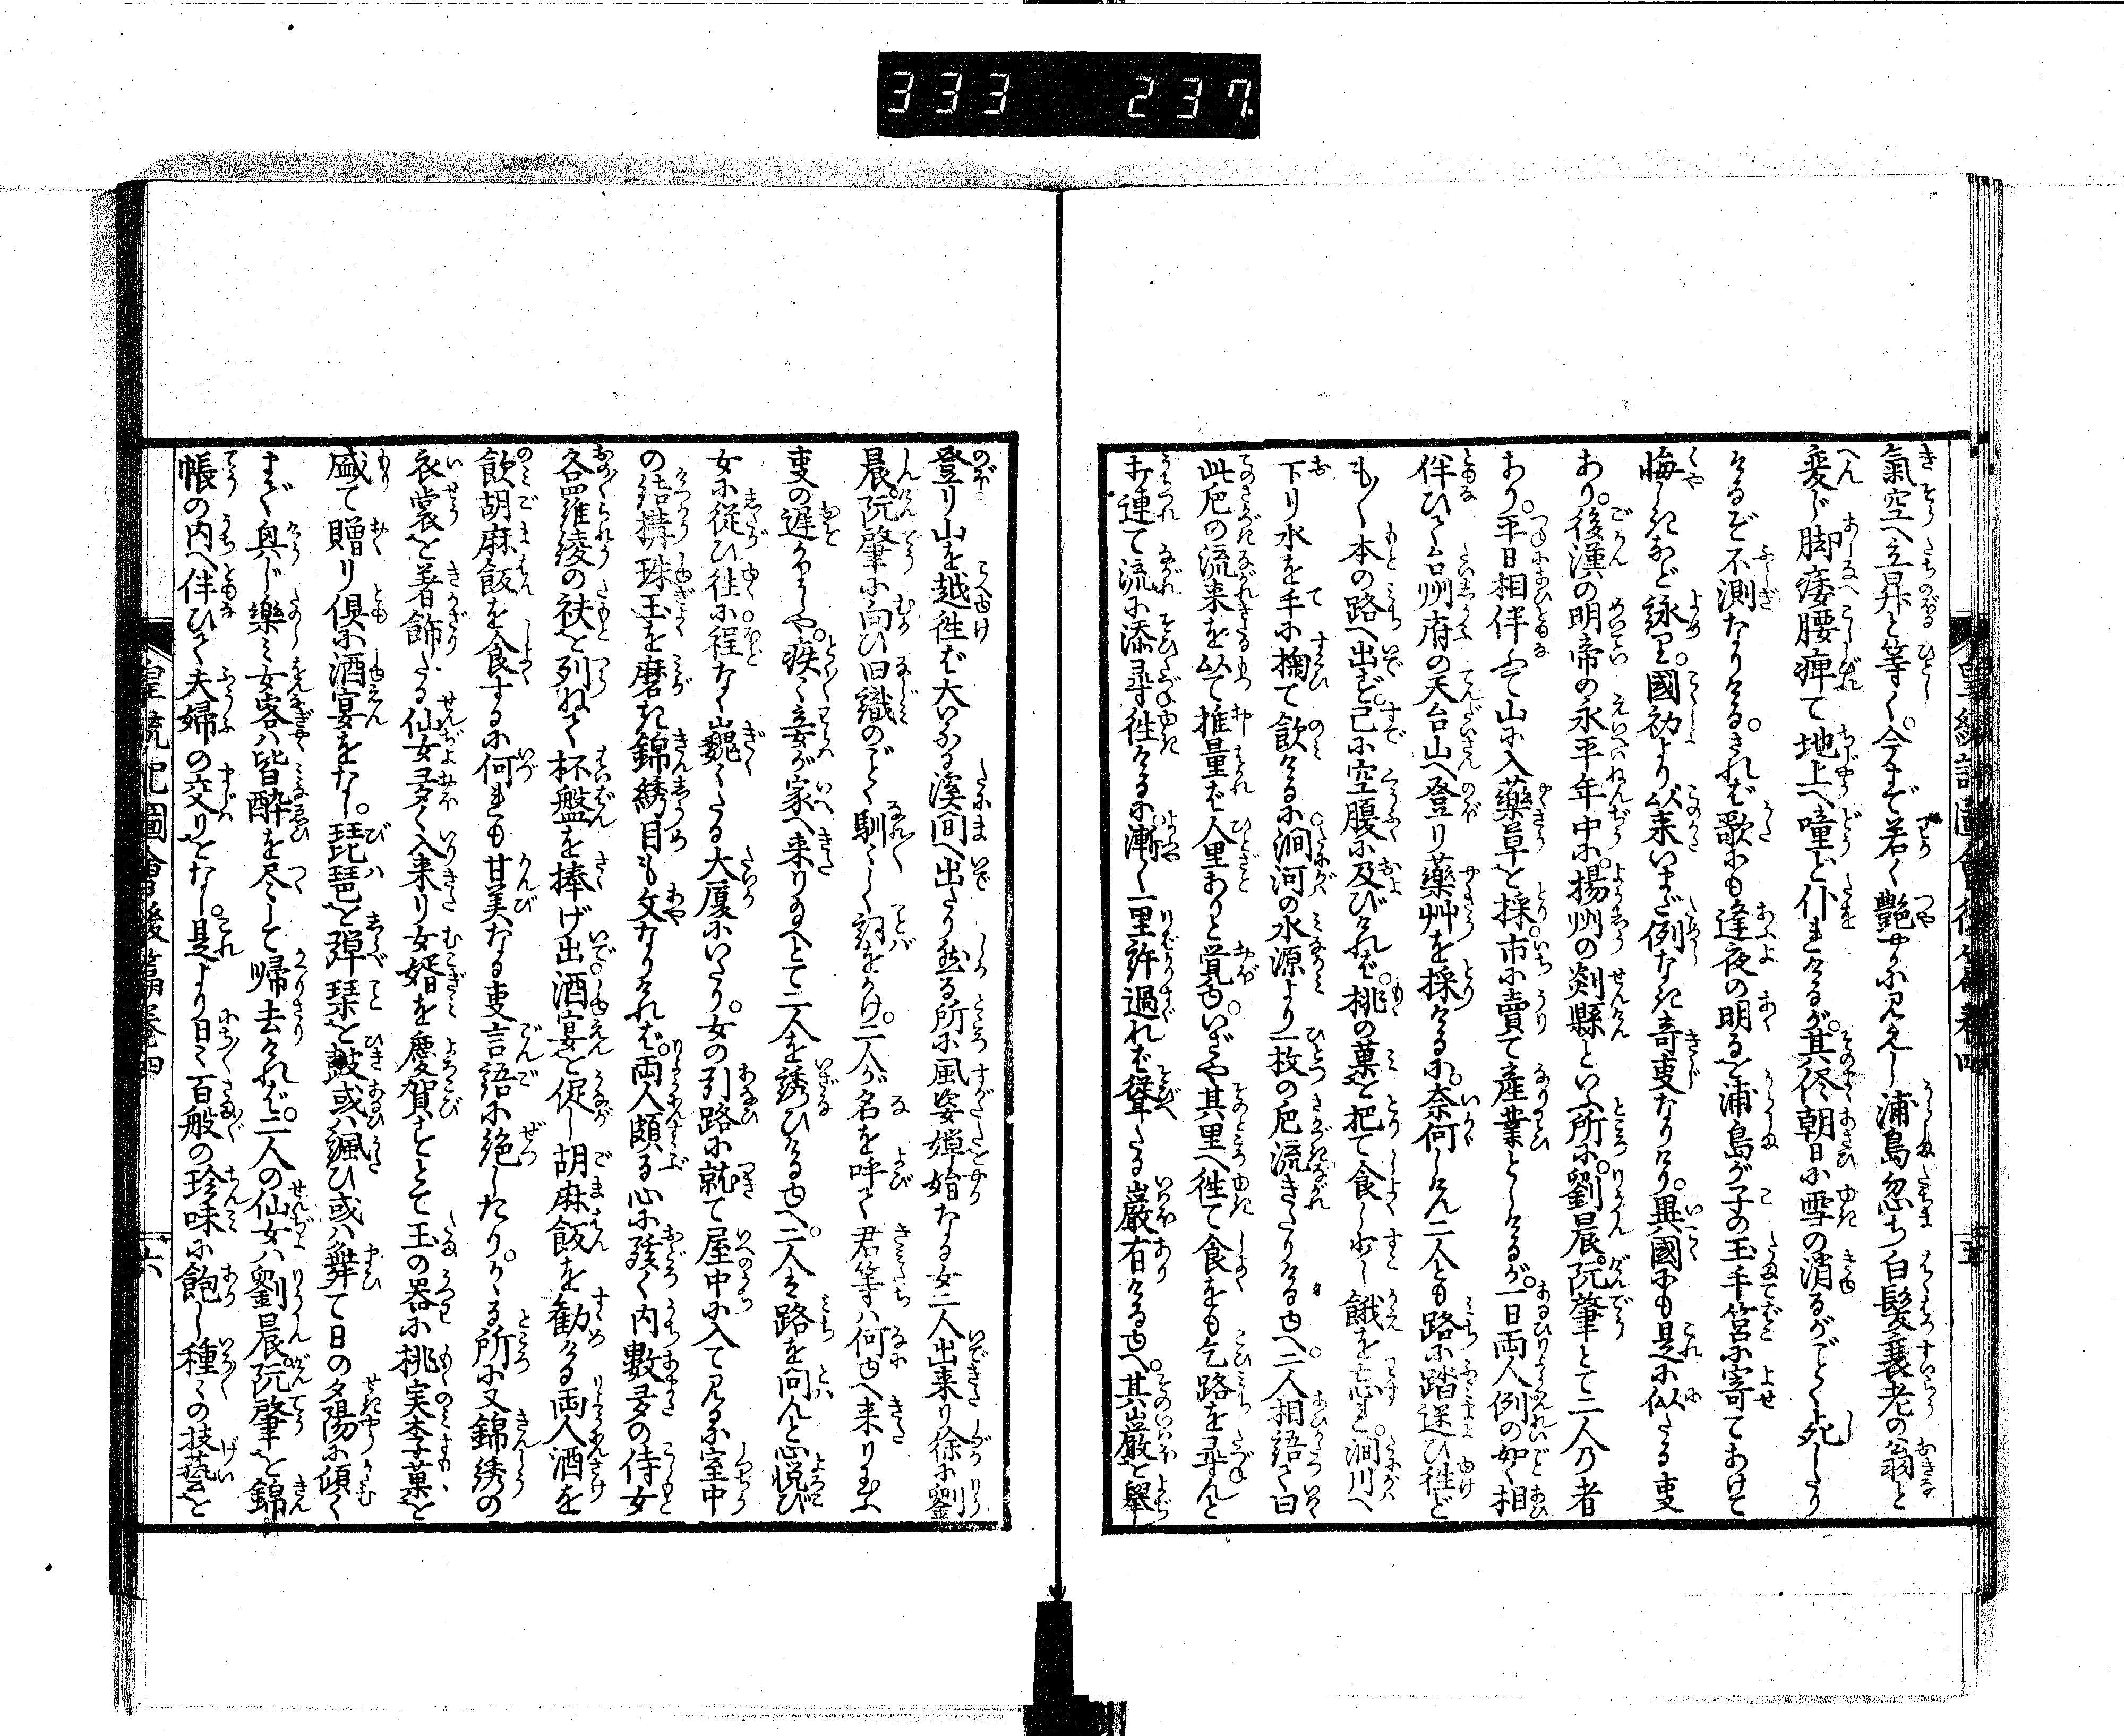 333 237
氣空へ立昇と等く。今まで若く艶やかに見えし浦島忽ち白髪衰老の翁と
変じ脚痿腰痺て地上へ噇ど仆れけるが。其侭朝日に雪の消るがごとく死したり
けるぞ不測なりける。されば歌にも逢夜の明ると浦島が子の玉手筥に寄てあけて
悔しきなど詠り。國初より以来いまだ例なき奇叓なりけり。異國にも是に似たる叓
あり。後漢の明帝の永平年中に。揚州の剡縣といふ所に。劉晨。阮肇とて二人乃者
あり。平日相伴ふて山に入藥草と採。市に賣て産業としけるが。一日両人例の如く相
伴ひて台州府の天台山へ登り藥艸を採けるに。奈何しけん二人とも路に踏迷ひ往ど
も〳〵本の路へ出ず。已に空腹に及びければ。桃の菓と把て食し少し餓を忘れ。澗川へ
下り水を手に掬て飲けるに。澗河の水源より一枚の巵流きたりけるゆへ。二人相語て曰
此巵の流来を以て推量ば人里ありと覚ゆ。いざや其里へ往て食をも乞路を尋んと
打連て流に添尋往けるに漸く一里許過れば聳たる巌有けるゆへ。其巌と攀
登り山を越往ば大いなる溪間へ出たり然る所に風姿婥始なる女二人出来り徐に劉
晨。阮肇に向ひ旧識のごとく馴々しく詞をかけ。二人が名を呼て君等ハ何ゆへ来り玉ふ
叓の遅かりしや。疾く妾が家へ来り玉へとて二人を誘ひけるゆへ。二人は路を問んと心悦び
女に従ひ往に程なく巍々たる大厦にいたり。女の引路に就て屋中に入て見るに室中
の結構珠玉を磨き錦綉目も文なりければ。両人頗る心に駭く内數多の侍女
各羅綾の袂と列ねて杯盤を捧げ出。酒宴と促し胡麻飯を勧ける両人酒を
飲胡麻飯を食するに何れも甘美なる叓言語に絶したり。かゝる所に又錦綉の
衣裳と着飾たる仙女多く入来り女婿を慶賀すとて玉の器に桃実李菓と
盛て贈り倶に酒宴をなし。琵琶と弾琹と鼓或ハ謳ひ或ハ舞て日の夕陽に傾く
まで興じ樂ミ女客ハ皆酔を尽して帰去ければ。二人の仙女ハ劉晨。阮肇と錦
帳の内へ伴ひて夫婦の交りとなし。是より日々百般の珍味に飽し種々の技藝と
皇統記圖會後篇巻四
六